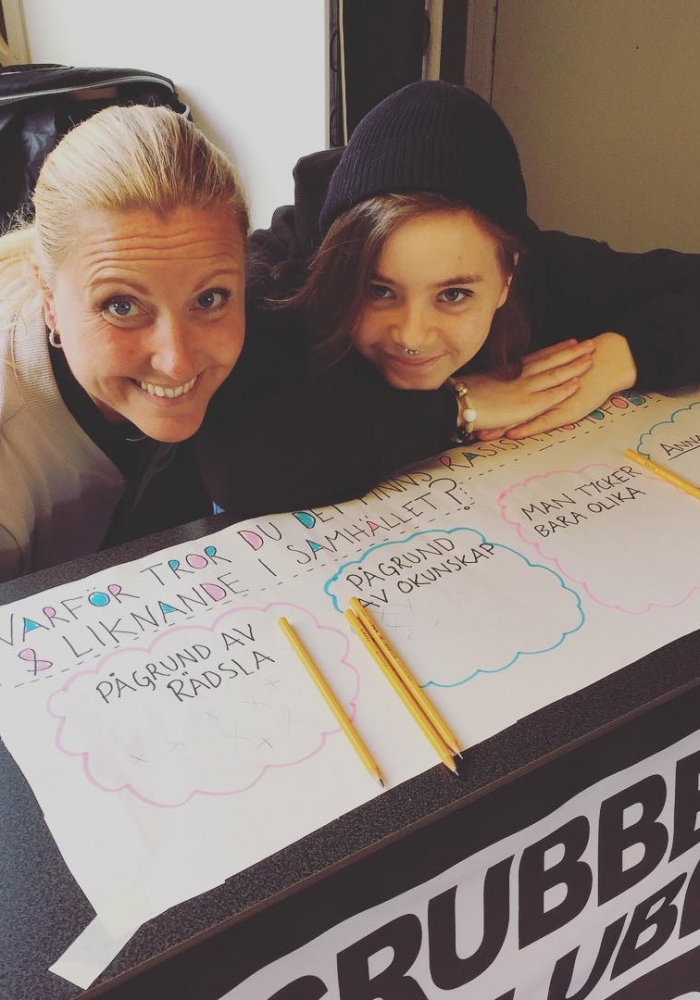 VARFÖR TROR DU DET FINNS RASISM, HOMOFOBI
& LIKNANDE I SAMHÄLLET?
PÅGRUND AV
RÄDSLA
PÅGRUND
AV OKUNSKAP
MAN TYCKER
BARA OLIKA
GRUBBE